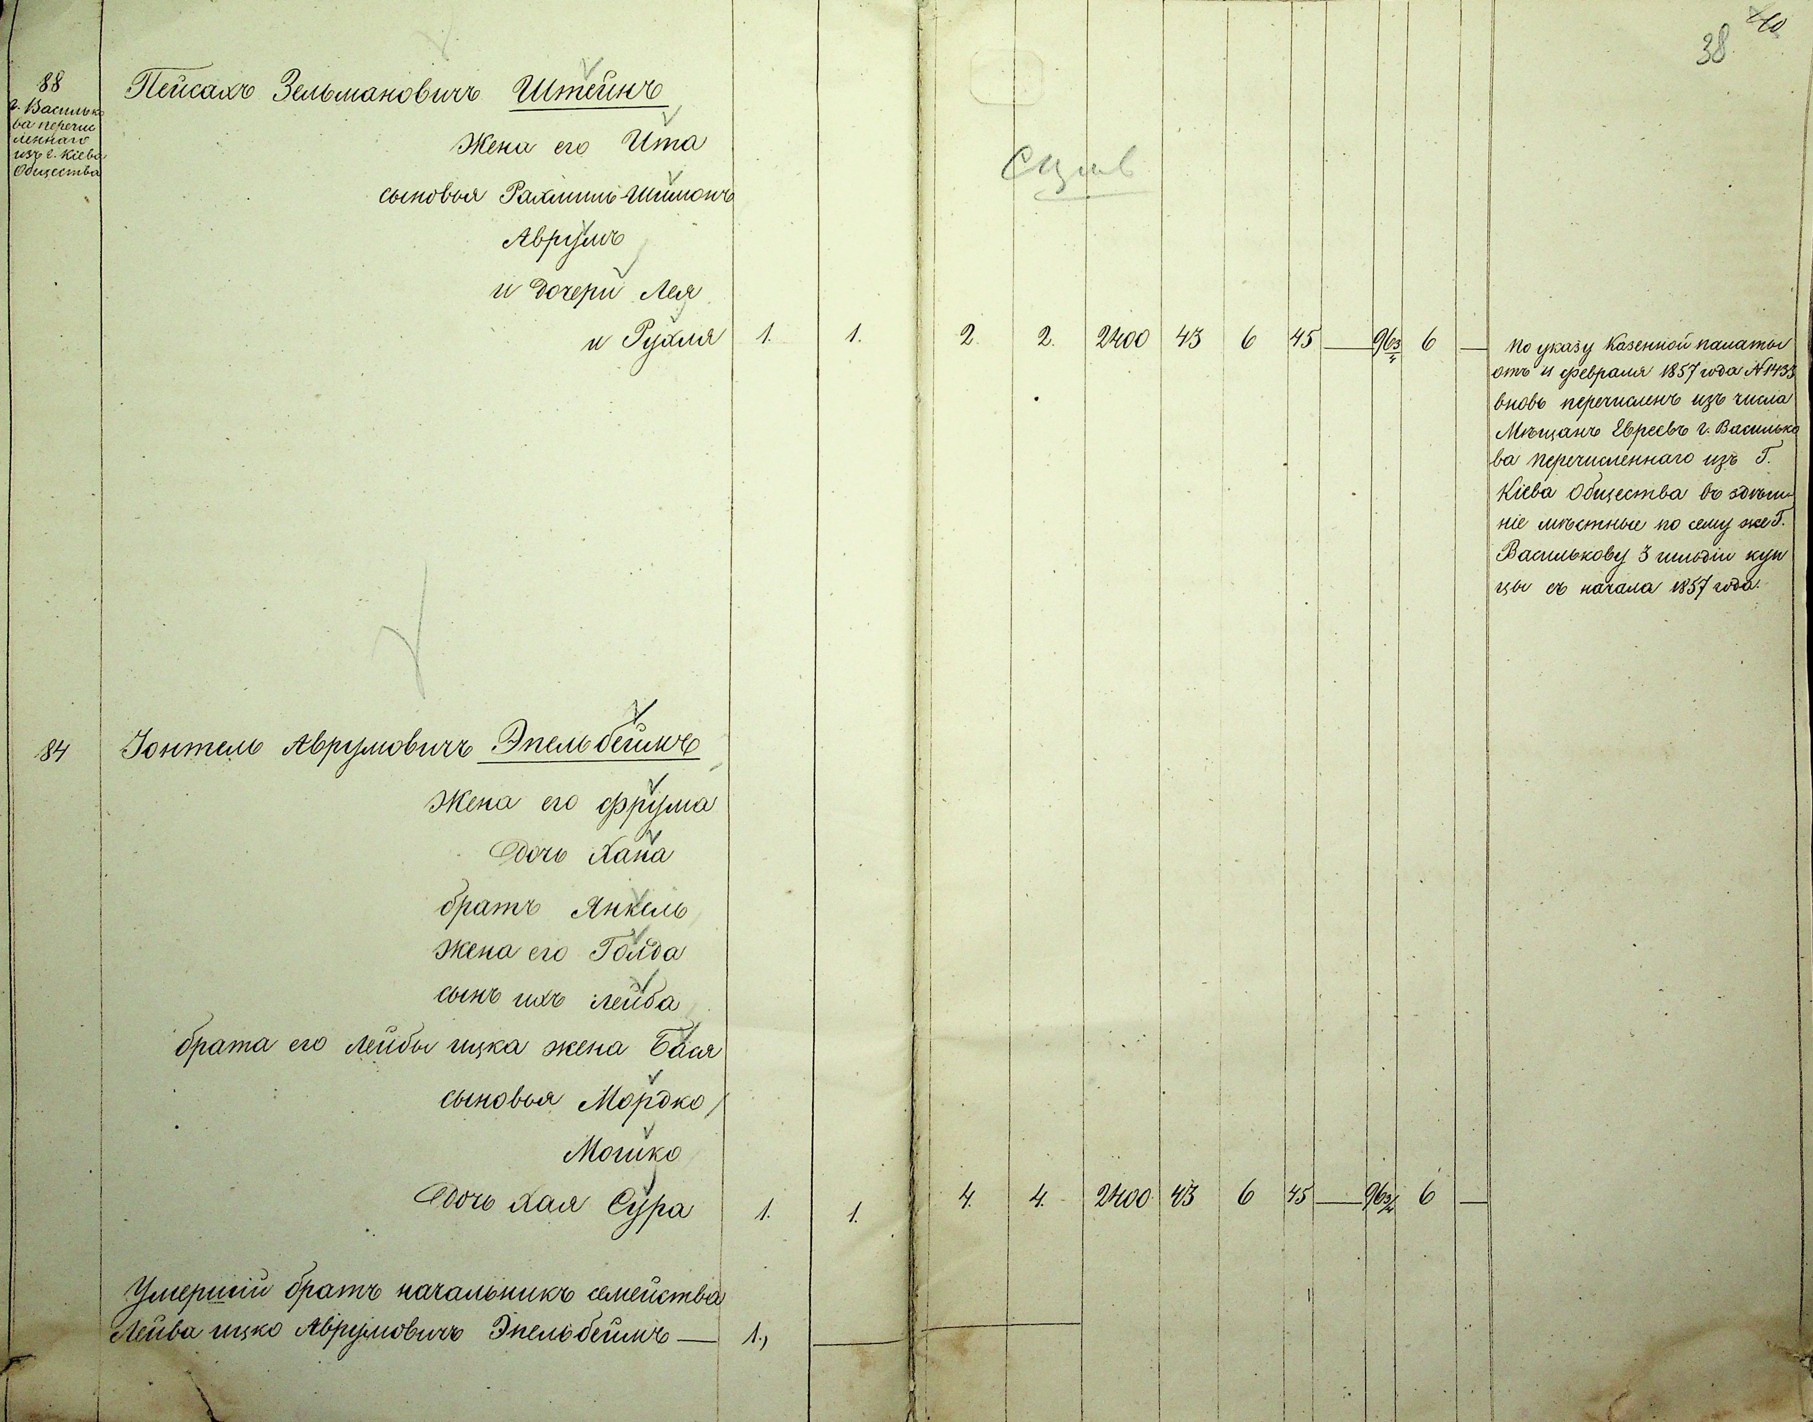 38
88 Пейсахъ Зельмановичъ Штейнъ
г. Василько
ва перечис
леннаго
изъ г. Кіева
Общества
Жена его Ита
сыновья Рахмиль-Шимонъ
Аврумъ
и дочери Лея
и Рухля 1. 1. 2. 2. 2400 43 6 45 — 96 3/4 6 —
По указу Казенной палаты
отъ 11 февраля 1857 года № 1433
вновь перечисленъ изъ числа
Мѣщанъ Евреевъ г. Василько
ва перечисленнаго изъ Г.
Кіева Общества въ
ніе мѣстные по сему же Г.
Василькову 3 гильдіи куп
цы съ начала 1857 года.
84 Іонтель Аврумовичъ Эпельбеймъ
Жена его Фрума
Дочь Хана
братъ Янкель
Жена его Голда
сынъ ихъ Лейба
брата его Лейбы ицка жена Бася
сыновья Мордко
Мошко
Дочь Хая Сура 1. 1. 4. 4. 2400 43 6 45 — 96 3/4 6 —
Умершій братъ начальникъ семейства
Лейба ицко Аврумовичъ Эпельбеймъ — 1.,